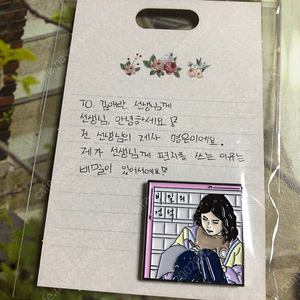 TO. 김애란 선생님께
선생님, 안녕하세요!
전 선생님의 제자 명은이에요.
제가 선생님께 편지를 쓰는 이유는
비밀이 있어서예요!
비밀의
언덕